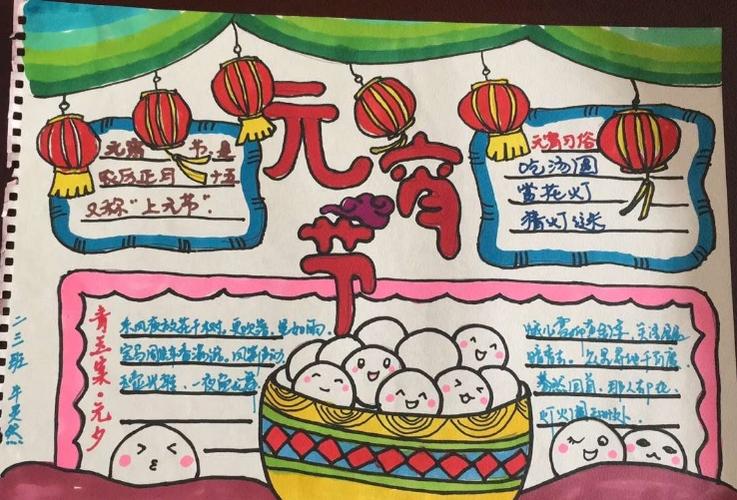 元宵节
元宵 节是
农历正月十五
又称"上元节".
元宵习俗
吃汤圆
赏花灯
猜灯谜
青玉案·元夕
东风夜放花千树.更吹落,星如雨.
宝马雕车香满路.凤箫声动,
玉壶光转,一夜鱼龙舞.
蛾儿雪柳黄金缕,笑语盈盈
暗香去.众里寻他千百度.
蓦然回首,那人却在,
灯火阑珊处.
二三班